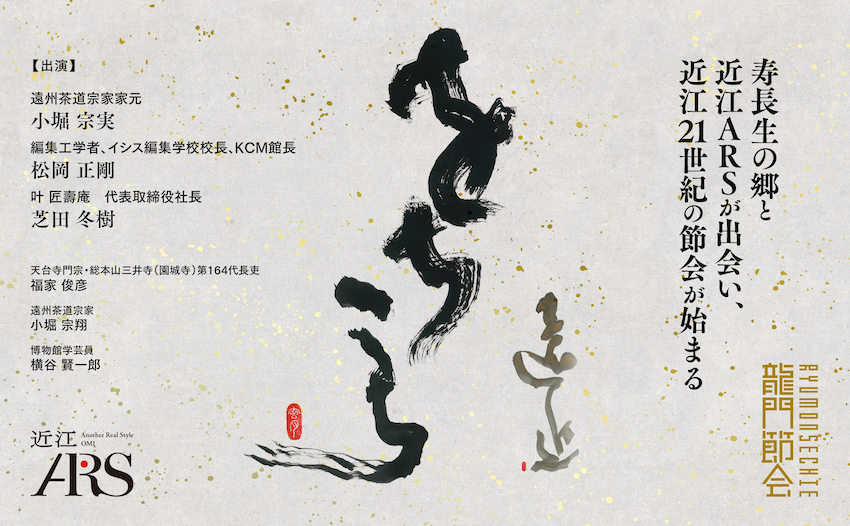 寿長生の郷と
近江ARSが出会い、
近江21世紀の節会が始まる
龍門節会
RYUMONSECHIE
をちこち
遠近
【出演】
遠州茶道宗家家元
小堀 宗実
編集工学者、イシス編集学校校長、KCM館長
松岡 正剛
叶 匠壽庵　代表取締役社長
芝田 冬樹
天台寺門宗・総本山三井寺（園城寺）第164代長吏
福家 俊彦
遠州茶道宗家
小堀 宗翔
博物館学芸員
横谷 賢一郎
近江
Another Real Style
OMI
ARS